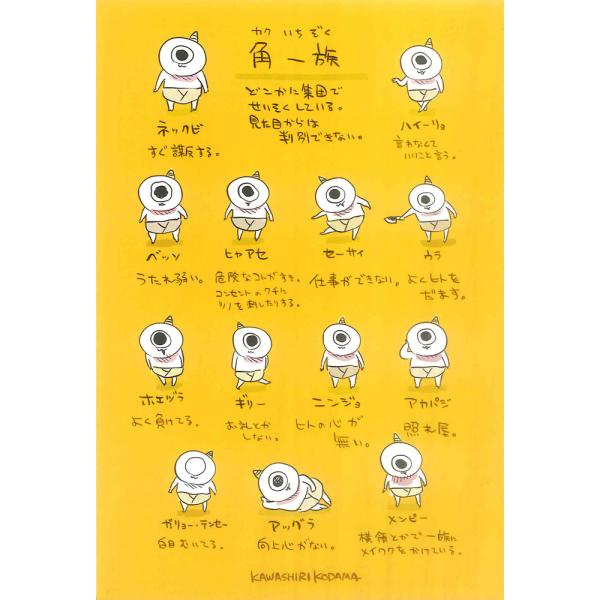 カク いちぞく
角一族
どこかに集団で
せいそくしている。
見た目からは
判別できない。
ネックビ
すぐ謀反する。
ハイーリョ
言わなくて
いいこと言う。
ベッソ
うたれ弱い。
ヒャアセ
危険なコトがすき。
コンセントのクチに
ツノを刺したりする。
セーサイ
仕事ができない。
ウラ
よくヒトを
だます。
ホエヅラ
よく負けてる。
ギリー
お礼とか
しない。
ニンジョ
ヒトの心が
無い。
アカパジ
照れ屋。
ガリョー・テンセー
白目むいてる。
アッグラ
向上心がない。
メンピー
横領とかで一族に
メイワクをかけている。
KAWASHIRI KODAMA